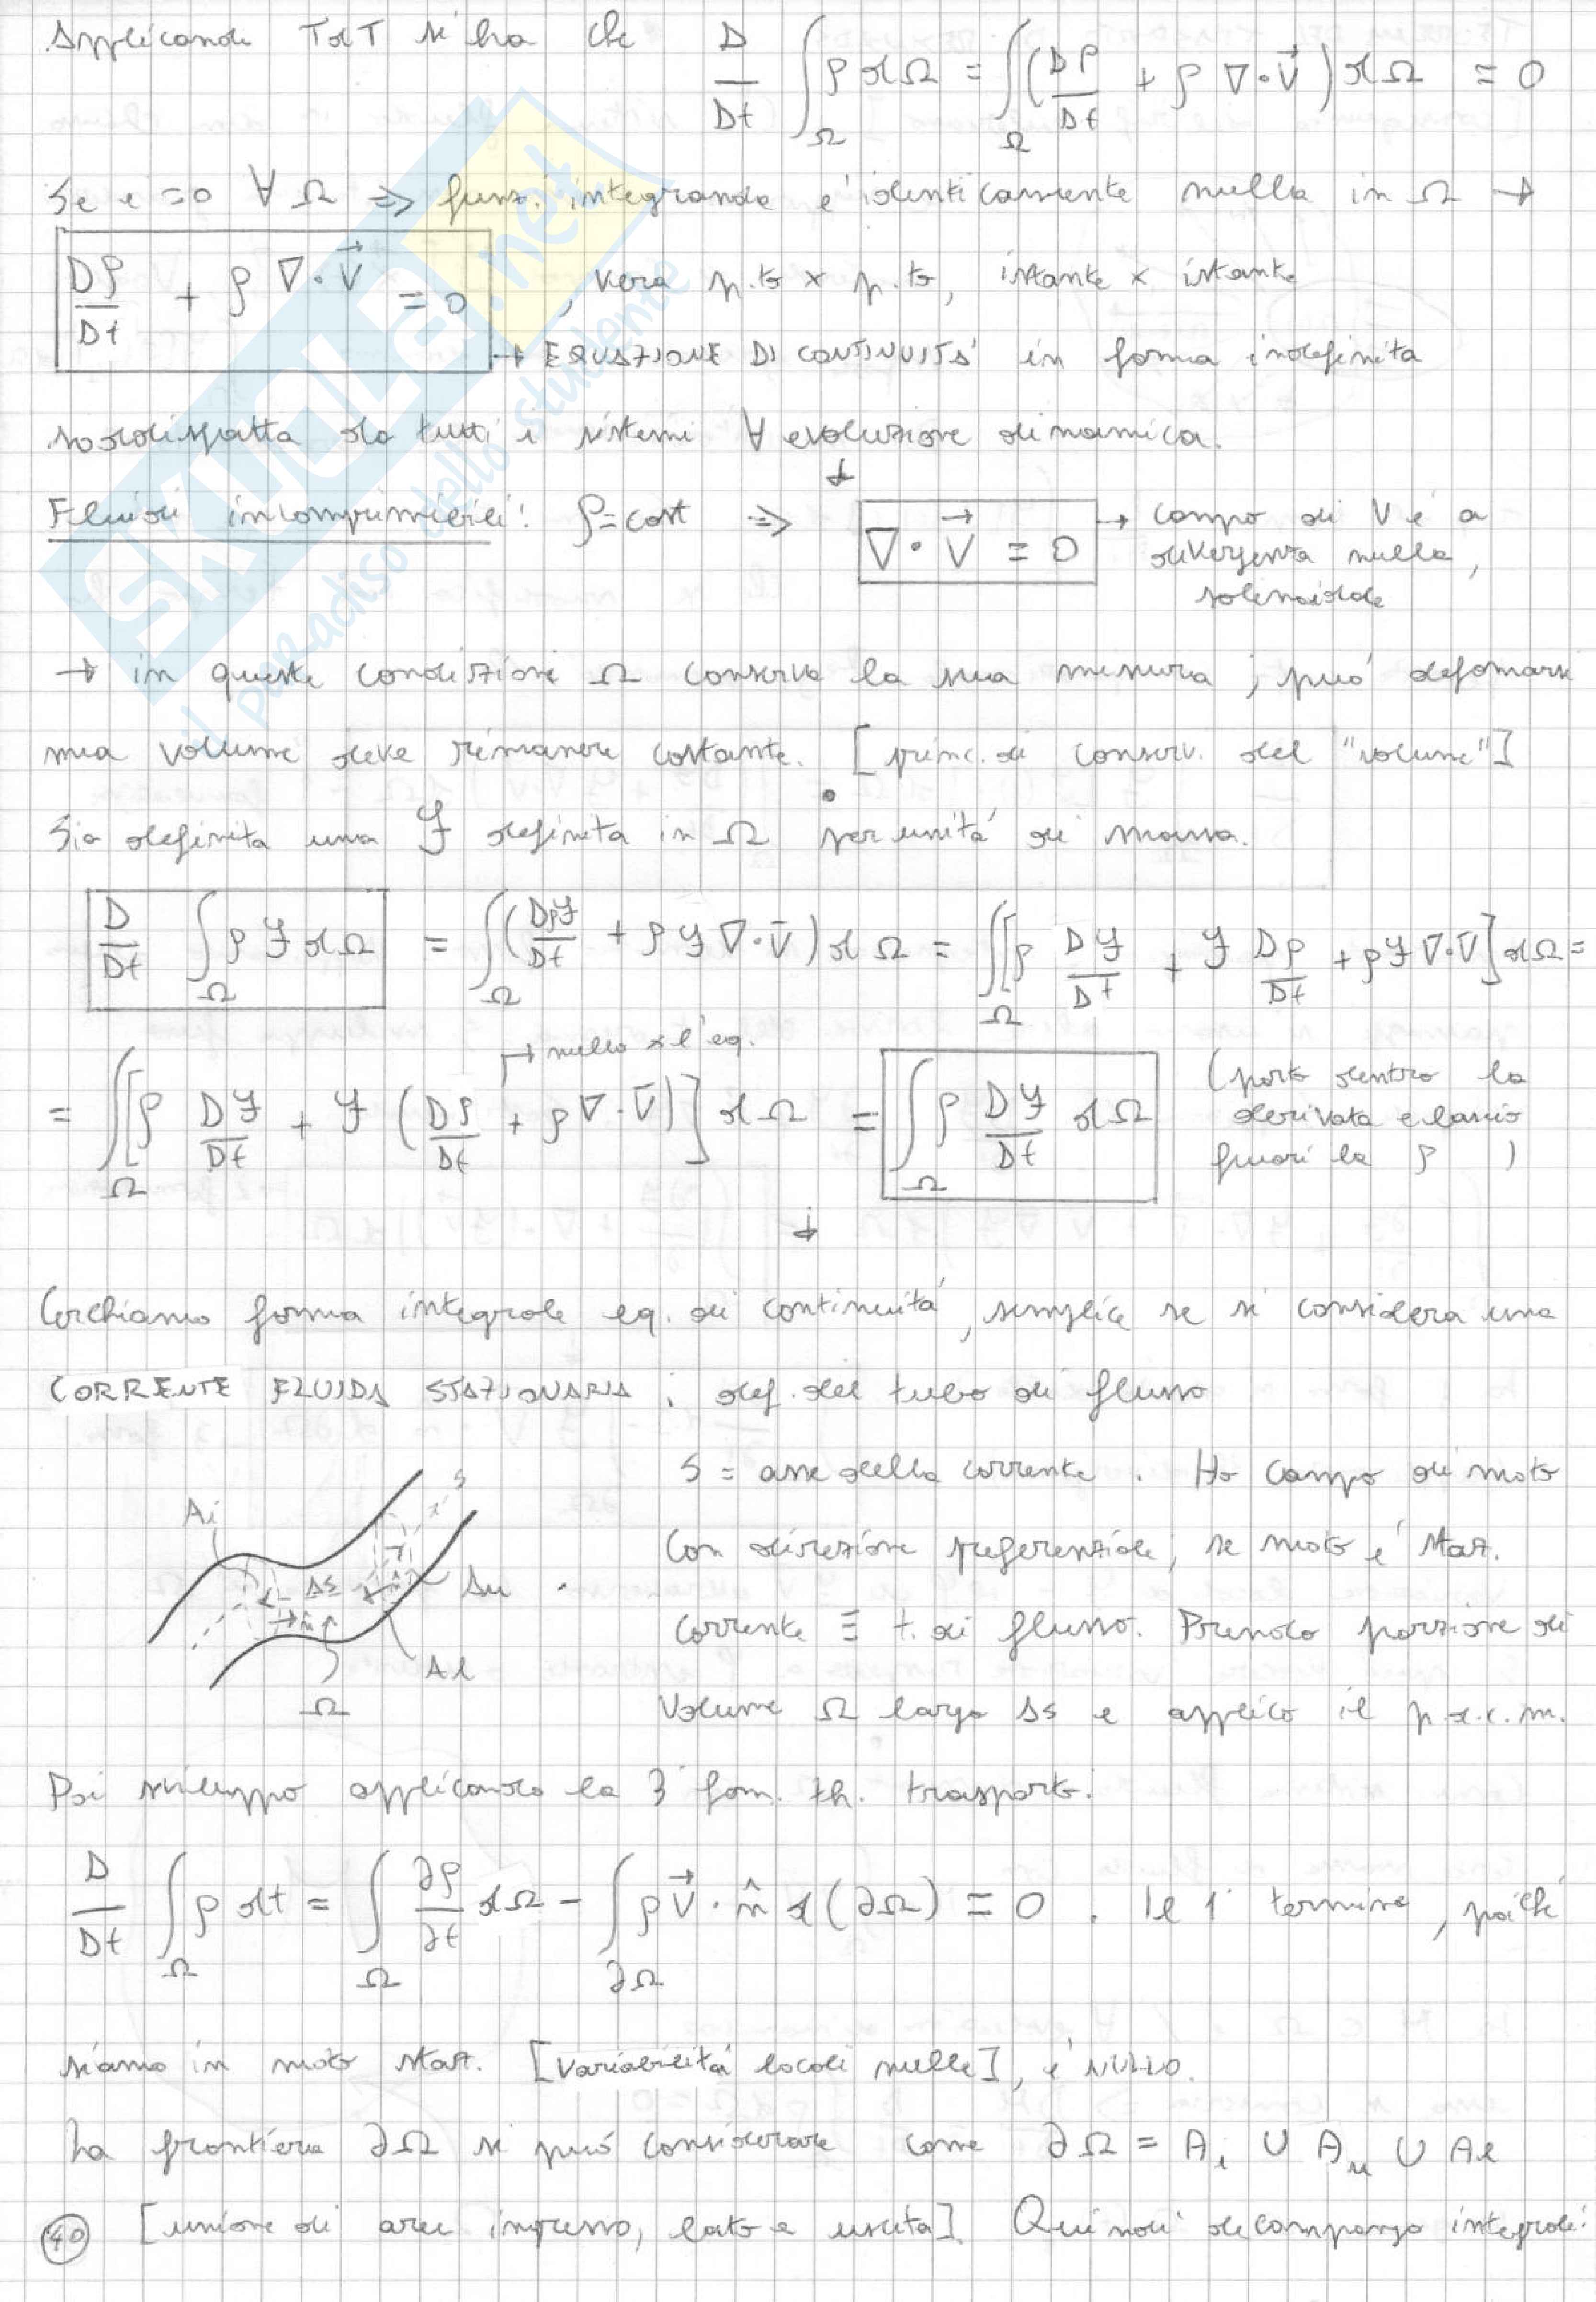 Applicando TdT si ha che D/Dt ∫_Ω ρ dΩ = ∫_Ω (Dρ/Dt + ρ ∇·V⃗) dΩ = 0
Se è =0 ∀ Ω ⇒ funz. integranda è identicamente nulla in Ω →
Dρ/Dt + ρ ∇·V⃗ = 0 , vera p.to x p.to, istante x istante
→ EQUAZIONE DI CONTINUITÀ in forma indefinita
soddisfatta da tutti i sistemi ∀ evoluzione dinamica.
Fluidi incomprimibili: ρ=cost ⇒ ∇·V⃗ = 0 → campo di V è a
divergenza nulla,
solenoidale
→ in queste condizioni Ω conserva la sua misura; può deformarsi
ma volume deve rimanere costante. [princ. di conserv. del "volume"]
Sia definita una ℱ definita in Ω per unità di massa.
D/Dt ∫_Ω ρ ℱ dΩ = ∫_Ω (Dρℱ/Dt + ρ ℱ ∇·V̄) dΩ = ∫_Ω [ρ Dℱ/Dt + ℱ Dρ/Dt + ρℱ ∇·V̄] dΩ =
→ nullo x l'eq.
= ∫_Ω [ρ Dℱ/Dt + ℱ (Dρ/Dt + ρ ∇·V̄)] dΩ = ∫_Ω ρ Dℱ/Dt dΩ (porto dentro la
derivata e lascio
fuori la ρ )
Cerchiamo forma integrale eq. di continuità, semplice se si considera una
CORRENTE FLUIDA STAZIONARIA : def. del tubo di flusso
S = asse della corrente. Ho campo di moto
con direzione preferenziale; se moto è staz.
corrente ≡ t. di flusso. Prendo porzione di
volume Ω largo Δs e applico il p.d.c.m.
Ai
s
Δs
n̂
Au
Al
Ω
Poi sviluppo applicando la 3ª form. th. trasporto:
D/Dt ∫_Ω ρ dt = ∫_Ω ∂ρ/∂t dΩ - ∫_∂Ω ρ V⃗ · n̂ d(∂Ω) = 0 . Il 1° termine, poiché
siamo in moto staz. [variabilità locali nulle], è NULLO.
La frontiera ∂Ω si può considerare come ∂Ω = A_i ∪ A_u ∪ Al
40 [unione di aree ingresso, lato e uscita]. Quindi decompongo integrali:
SKUOLA.net
il paradiso dello studente